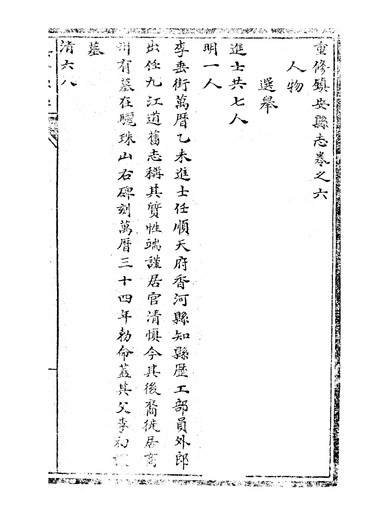 重修鎮安縣志卷之六
人物
選舉
進士共七人
明一人
李垂街萬曆乙未進士任順天府香河縣知縣歷工部員外郎
出任九江道舊志稱其質性端謹居官清慎今其後裔徙居商
州有墓在驪珠山右碑刻萬曆三十四年勅命蓋其父李初
墓
清六人